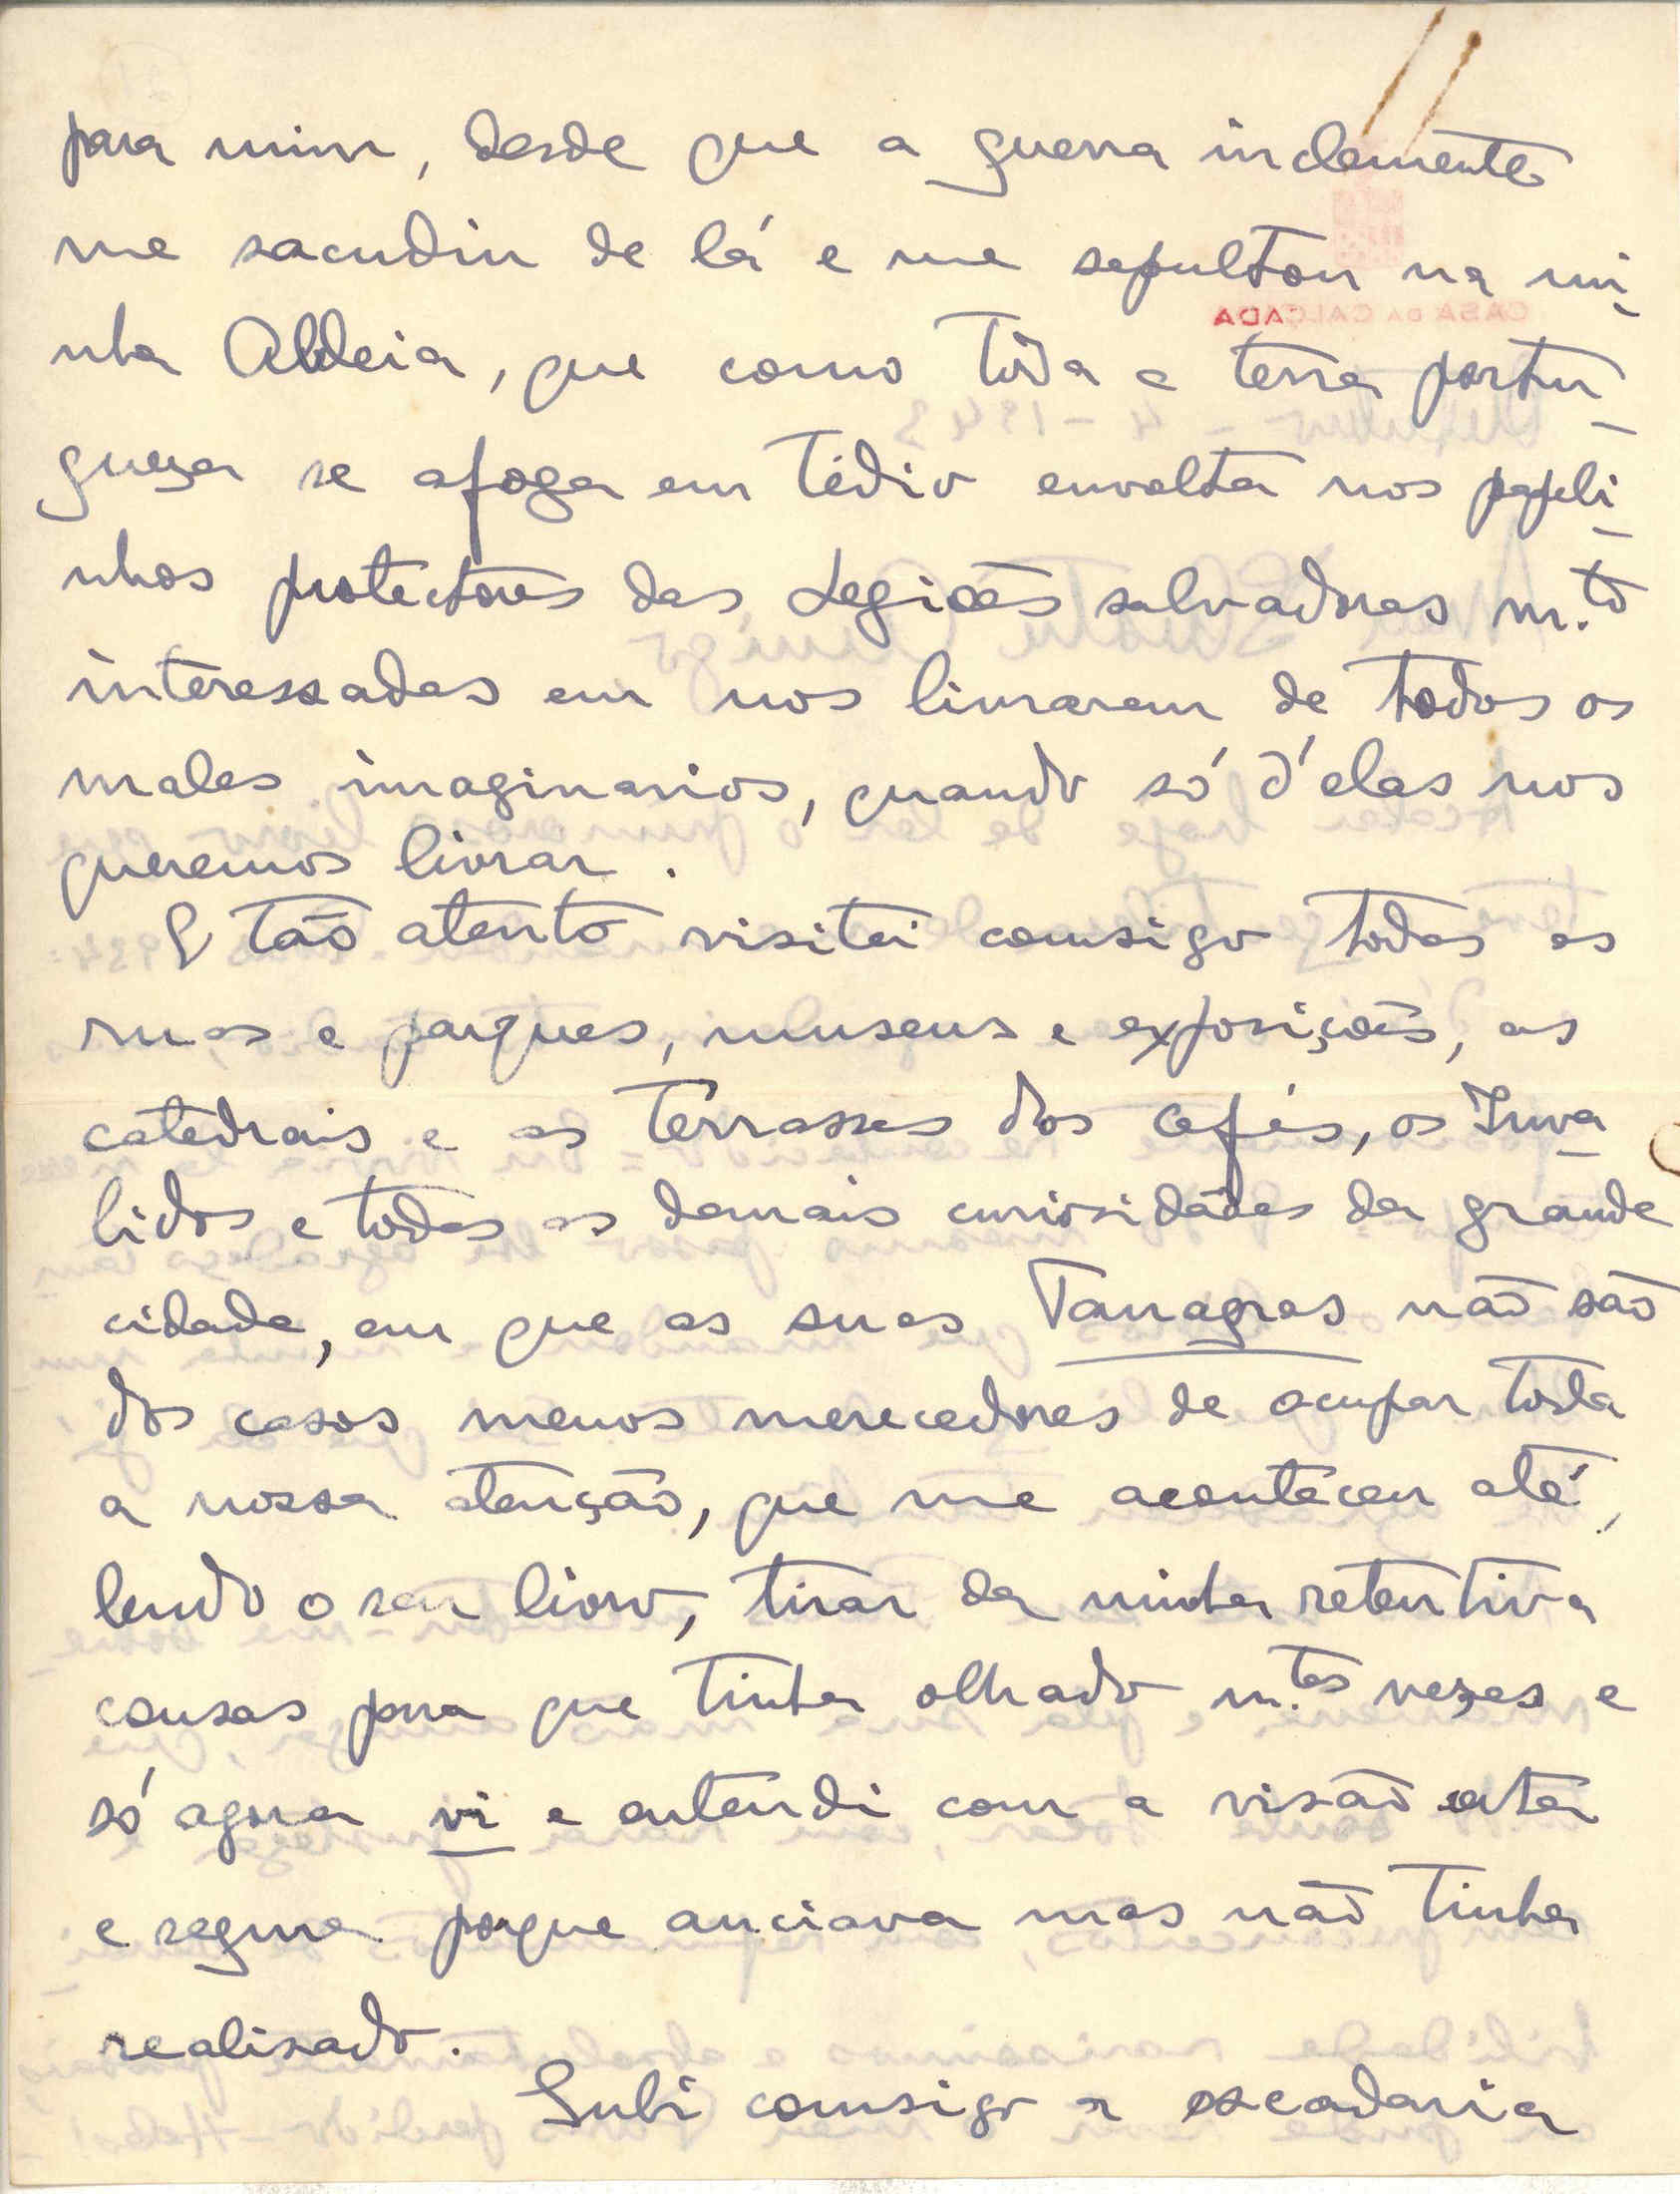 para mim, desde que a guerra inclemente
me sacudiu de lá e me sepultou na mi-
nha Aldeia, que como tôda a terra portu-
gueza se afoga em tédio envolta nos papeli-
nhos protectores das Legiões salvadoras m.to
interessadas em nos livrarem de todos os
males imaginarios, quando só d'elas nos
queremos livrar.
E tão atento visitei comsigo todas as
ruas e parques, museus e exposições, as
catedrais e as terrasses dos cafés, os Inva-
lidos e todas as demais curiosidades da grande
cidade, em que as suas Tanagras não são
dos casos menos merecedores de ocupar toda
a nossa atenção, que me aconteceu até,
lendo o seu livro, tirar da minha retentiva
cousas para que tinha olhado m.tas vezes e
só agora vi e entendi com a visão
e segura porque anciava mas não tinha
realisado.
Subi comsigo a escadaria
CASA DA CALÇADA
- 4 - 1943